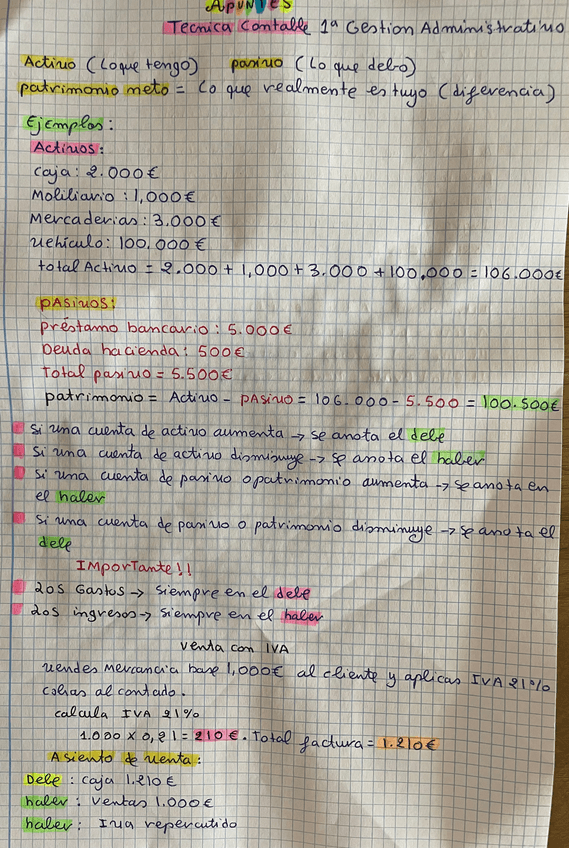 Apuntes
Tecnica Contable 1ª Gestion Administrativo
Activo (Lo que tengo) pasivo (Lo que debo)
patrimonio meto = Lo que realmente es tuyo (diferencia)
Ejemplos:
Activos:
caja: 2.000€
Moliliario: 1,000€
Mercaderias: 3.000€
vehículo: 100.000€
total Activo = 2.000 + 1,000 + 3.000 + 100,000 = 106.000€
pAsivos:
préstamo bancario: 5.000€
Deuda hacienda: 500€
Total pasivo = 5.500€
patrimonio = Activo - pAsivo = 106.000 - 5.500 = 100.500€
Si una cuenta de activo aumenta → se anota el debe
Si una cuenta de activo disminuye → se anota el haber
Si una cuenta de pasivo o patrimonio aumenta → se anota en
el haber
Si una cuenta de pasivo o patrimonio disminuye → se anota el
debe
IMPorTante!!
Los Gastos → siempre en el debe
Los ingresos → siempre en el haber
Venta con IVA
vendes mercancia base 1,000€ al cliente y aplicas IVA 21%
cobras al contado.
calcula IVA 21%
1.000 x 0,21 = 210€. Total factura = 1.210€
Asiento de venta:
Debe: caja 1.210€
haber: Ventas 1.000€
haber: Iva repercutido